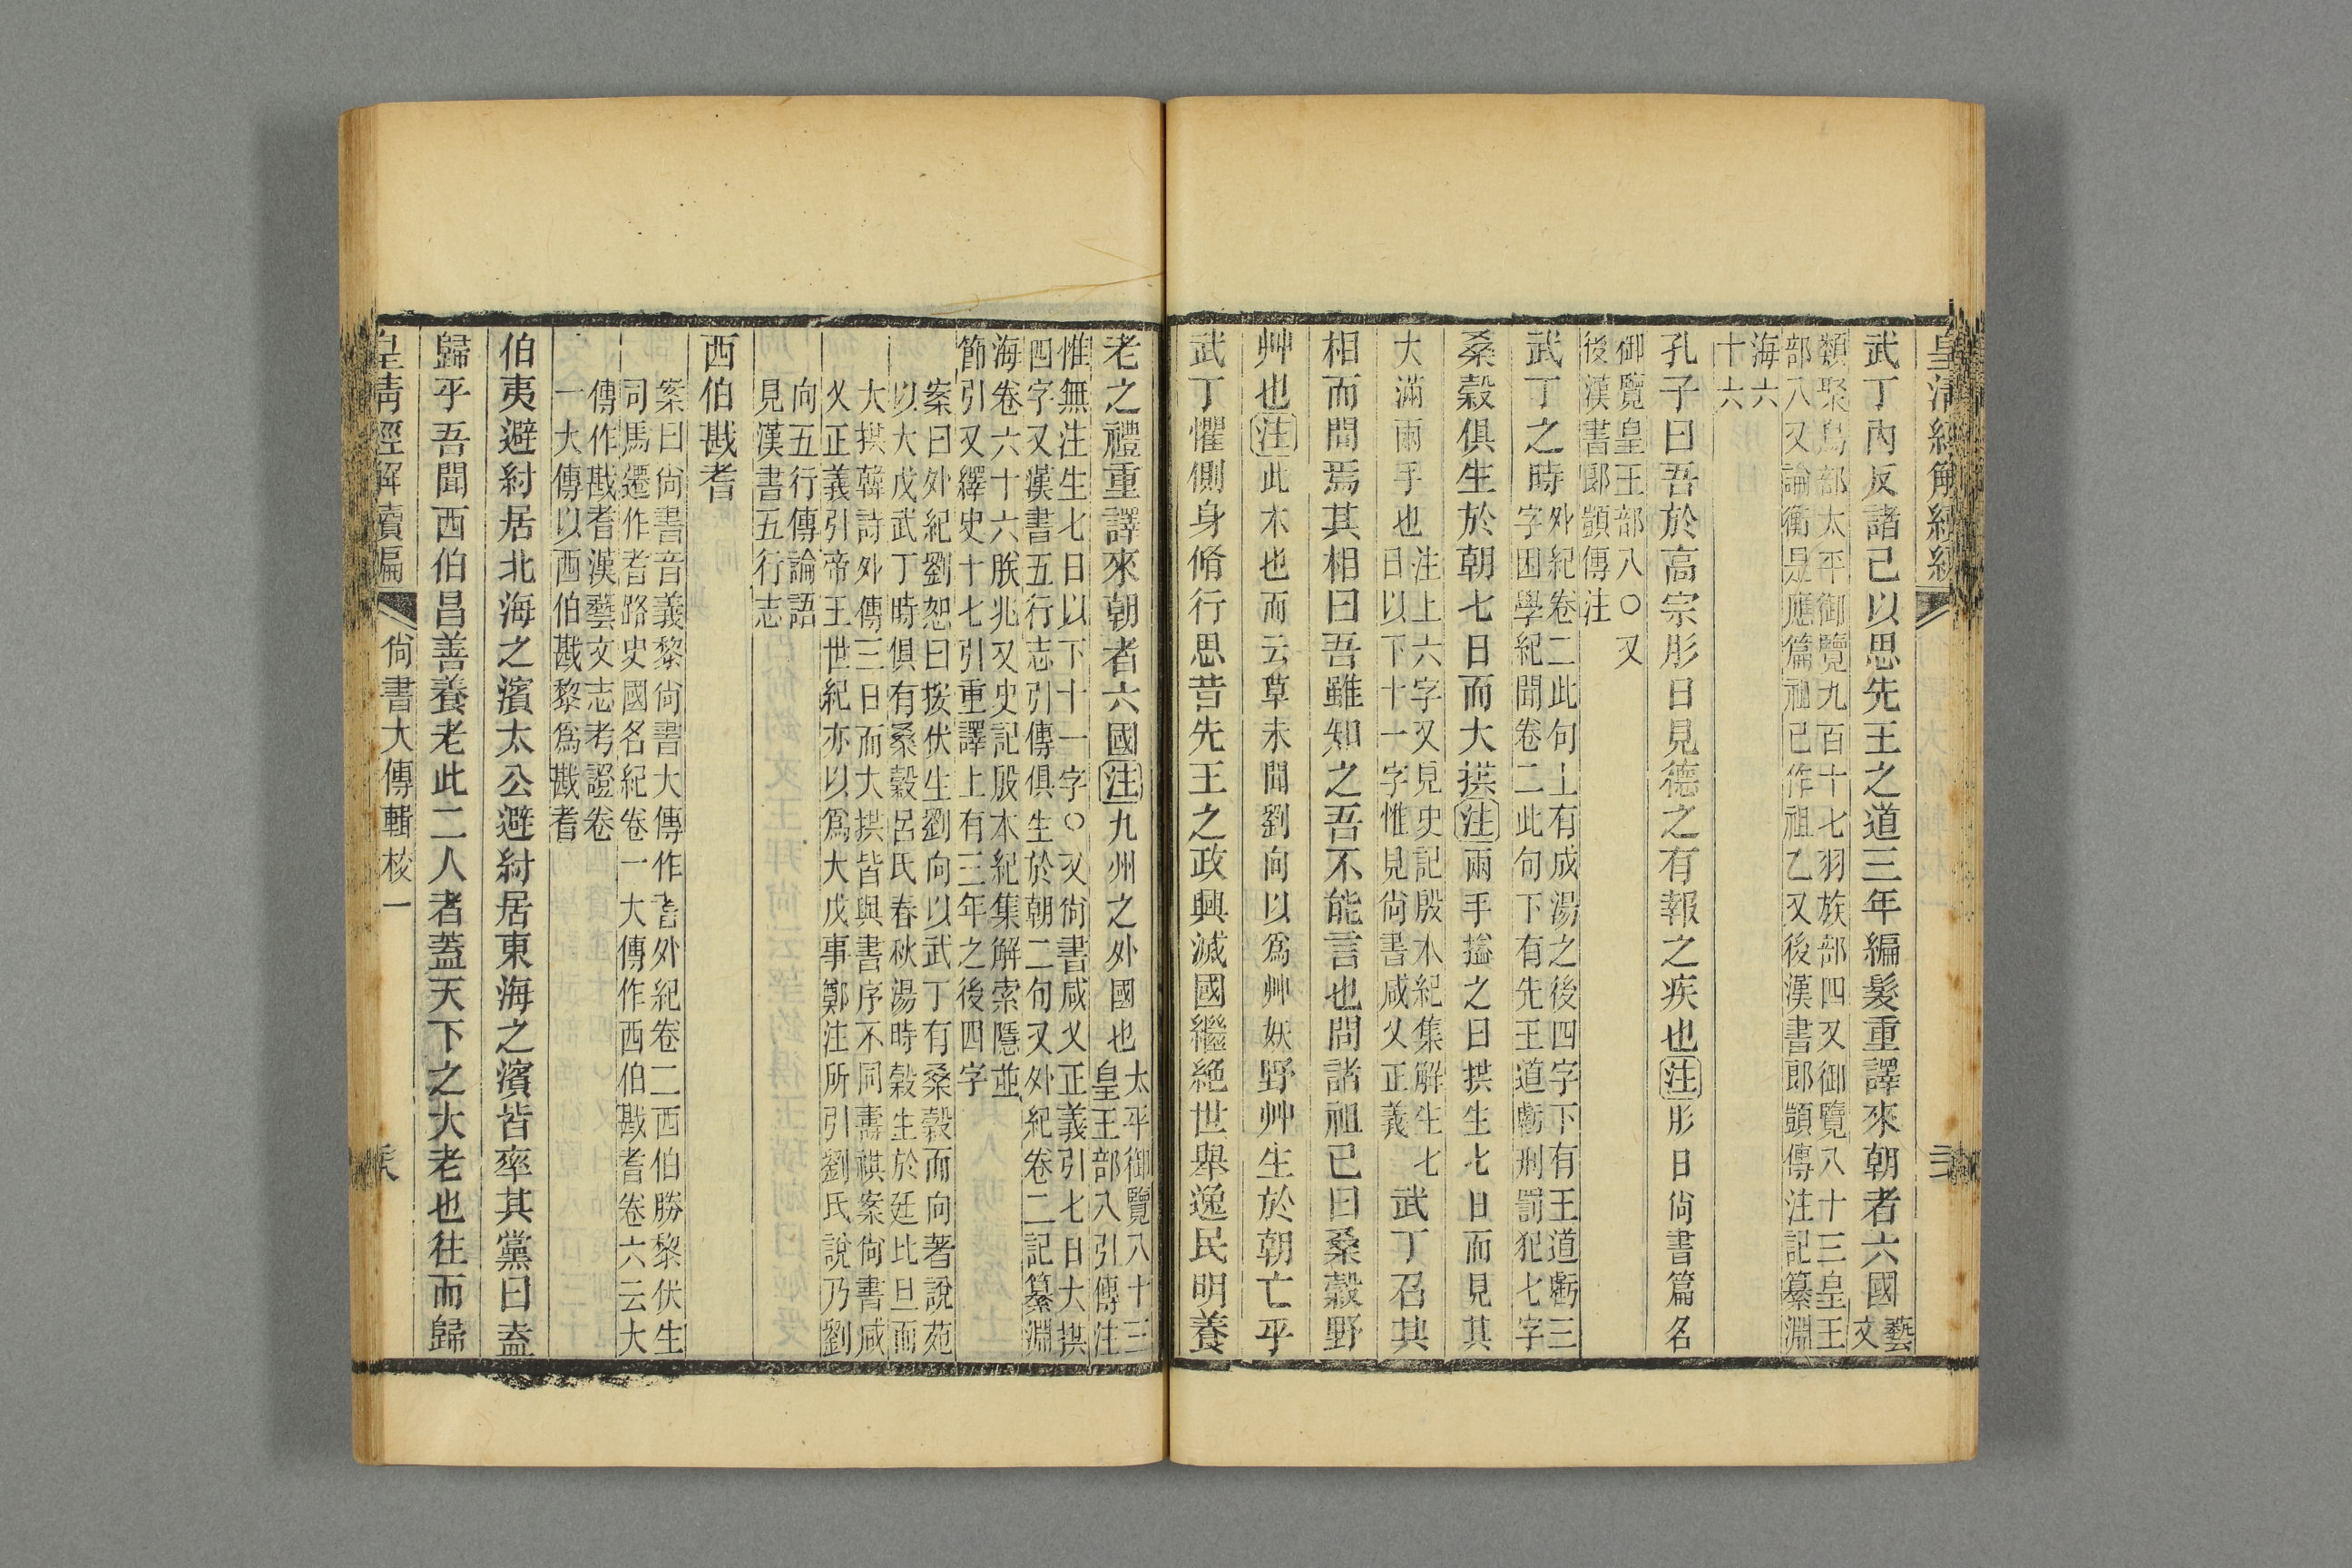 武丁內反諸己以思先王之道三年編髮重譯來朝者六國藝文
類聚鳥部太平御覽九百十七羽族部四又御覽八十三皇王
部八又論衡是應篇祖己作祖乙又後漢書郎顗傳注記纂淵
海六
十六
孔子曰吾於高宗肜日見德之有報之疾也注肜日尙書篇名
御覽皇王部八○又
後漢書郎顗傳注
武丁之時外紀卷二此句上有成湯之後四字下有王道虧三
字困學紀聞卷二此句下有先王道虧刑罰犯七字
桑穀俱生於朝七日而大拱注兩手搤之曰拱生七日而見其
大滿兩手也注上六字又見史記殷本紀集解生七
日以下十一字惟見尙書咸乂正義武丁召其
相而問焉其相曰吾雖知之吾不能言也問諸祖已曰桑穀野
艸也注此木也而云草未聞劉向以爲艸妖野艸生於朝亡乎
武丁懼側身脩行思昔先王之政興滅國繼絶世舉逸民明養
老之禮重譯來朝者六國注九州之外國也太平御覽八十三
皇王部八引傳注
惟無注生七日以下十一字○又尙書咸乂正義引七日大拱
四字又漢書五行志引傳俱生於朝二句又外紀卷二記纂淵
海卷六十六朕兆又史記殷本紀集解索隱並
節引又繹史十七引重譯上有三年之後四字
案曰外紀劉恕曰按伏生劉向以武丁有桑穀而向著說苑
以大戊武丁時俱有桑穀呂氏春秋湯時榖生於廷比旦而
大拱韓詩外傳三日而大拱皆與書序不同壽祺案尙書咸
乂正義引帝王世紀亦以爲大戊事鄭注所引劉氏說乃劉
向五行傳論語
見漢書五行志
西伯戡耆
案曰尙書音義黎尙書大傳作耆外紀卷二西伯勝黎伏生
司馬遷作耆路史國名紀卷一大傳作西伯戡耆卷六云大
傳作戡耆漢藝文志考證卷
一大傳以西伯戡黎爲戡耆
伯夷避紂居北海之濱太公避紂居東海之濱皆率其黨曰盍
歸乎吾聞西伯昌善養老此二人者蓋天下之大老也往而歸
皇淸經解續編 尙書大傳輯校一